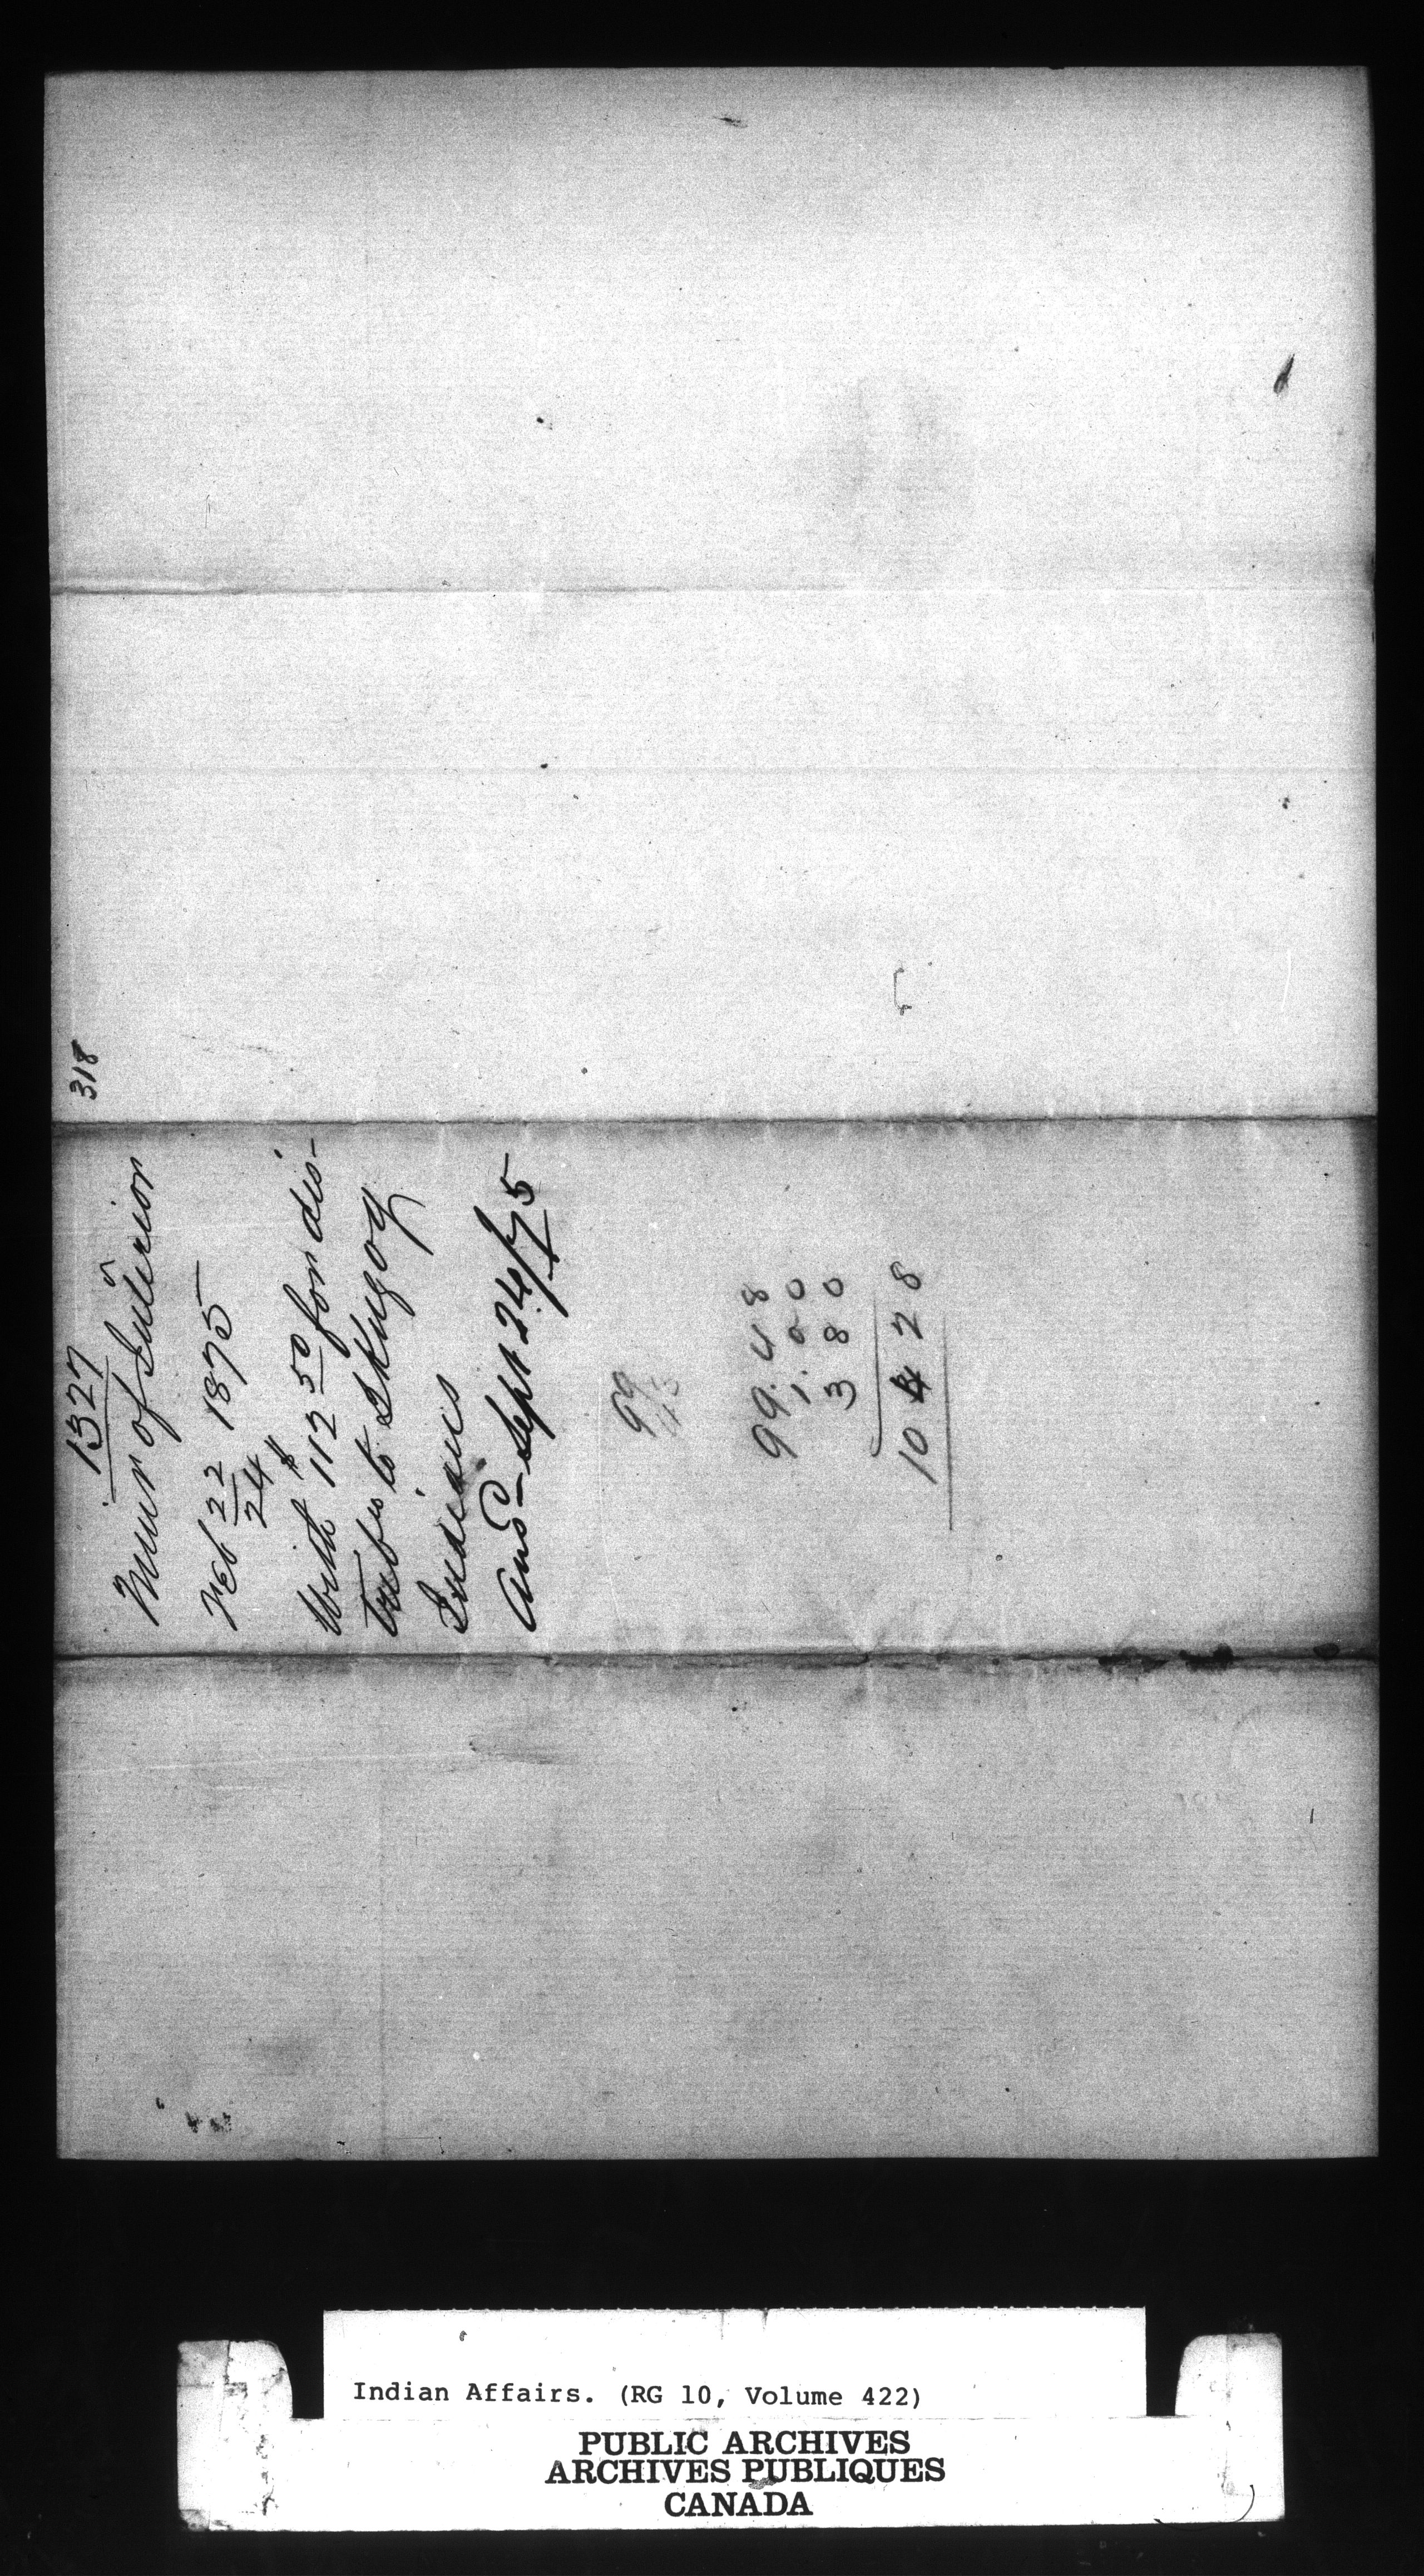 318
1327
Minr of Interior
Feb 22/24 1875
With 112 50 $ for dis-
trib n to Skugog
Indians
Ansd Sept 24/75
99
99.48
1.00
3 80
104 28
Indian Affairs. (RG 10, Volume 422)
PUBLIC ARCHIVES
ARCHIVES PUBLIQUES
CANADA